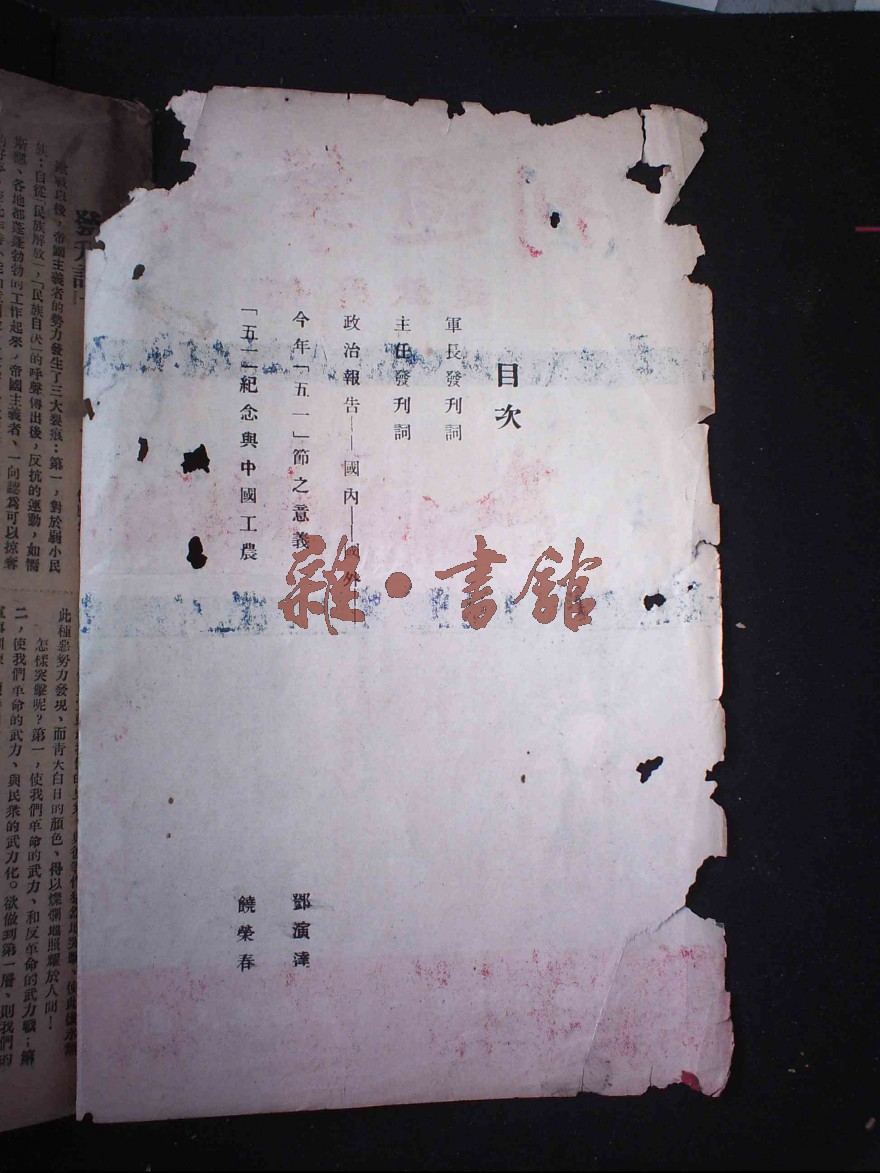 目次
軍長發刊詞
主任發刊詞
政治報告——國內——國外
今年「五一」節之意義 鄧演達
「五一」紀念與中國工農 饒榮春
雜·書館
發刊詞
以後，帝國主義者的勢力發生了三大裂痕：第一，對於弱小民
族：自從「民族解放」，「民族自決」的呼聲傳出後，反抗的運動，如雨
各地都蓬蓬勃勃的工作起來，帝國主義者、一向認爲可以掠奪
此種惡勢力發現、而靑天白日的顏色、得以燦爛地照耀於人間！
怎樣突擊呢？第一，使我們革命的武力、和反革命的武力戰；第
二，使我們革命的武力、與民衆的武力化。欲做到第一層、則我們的